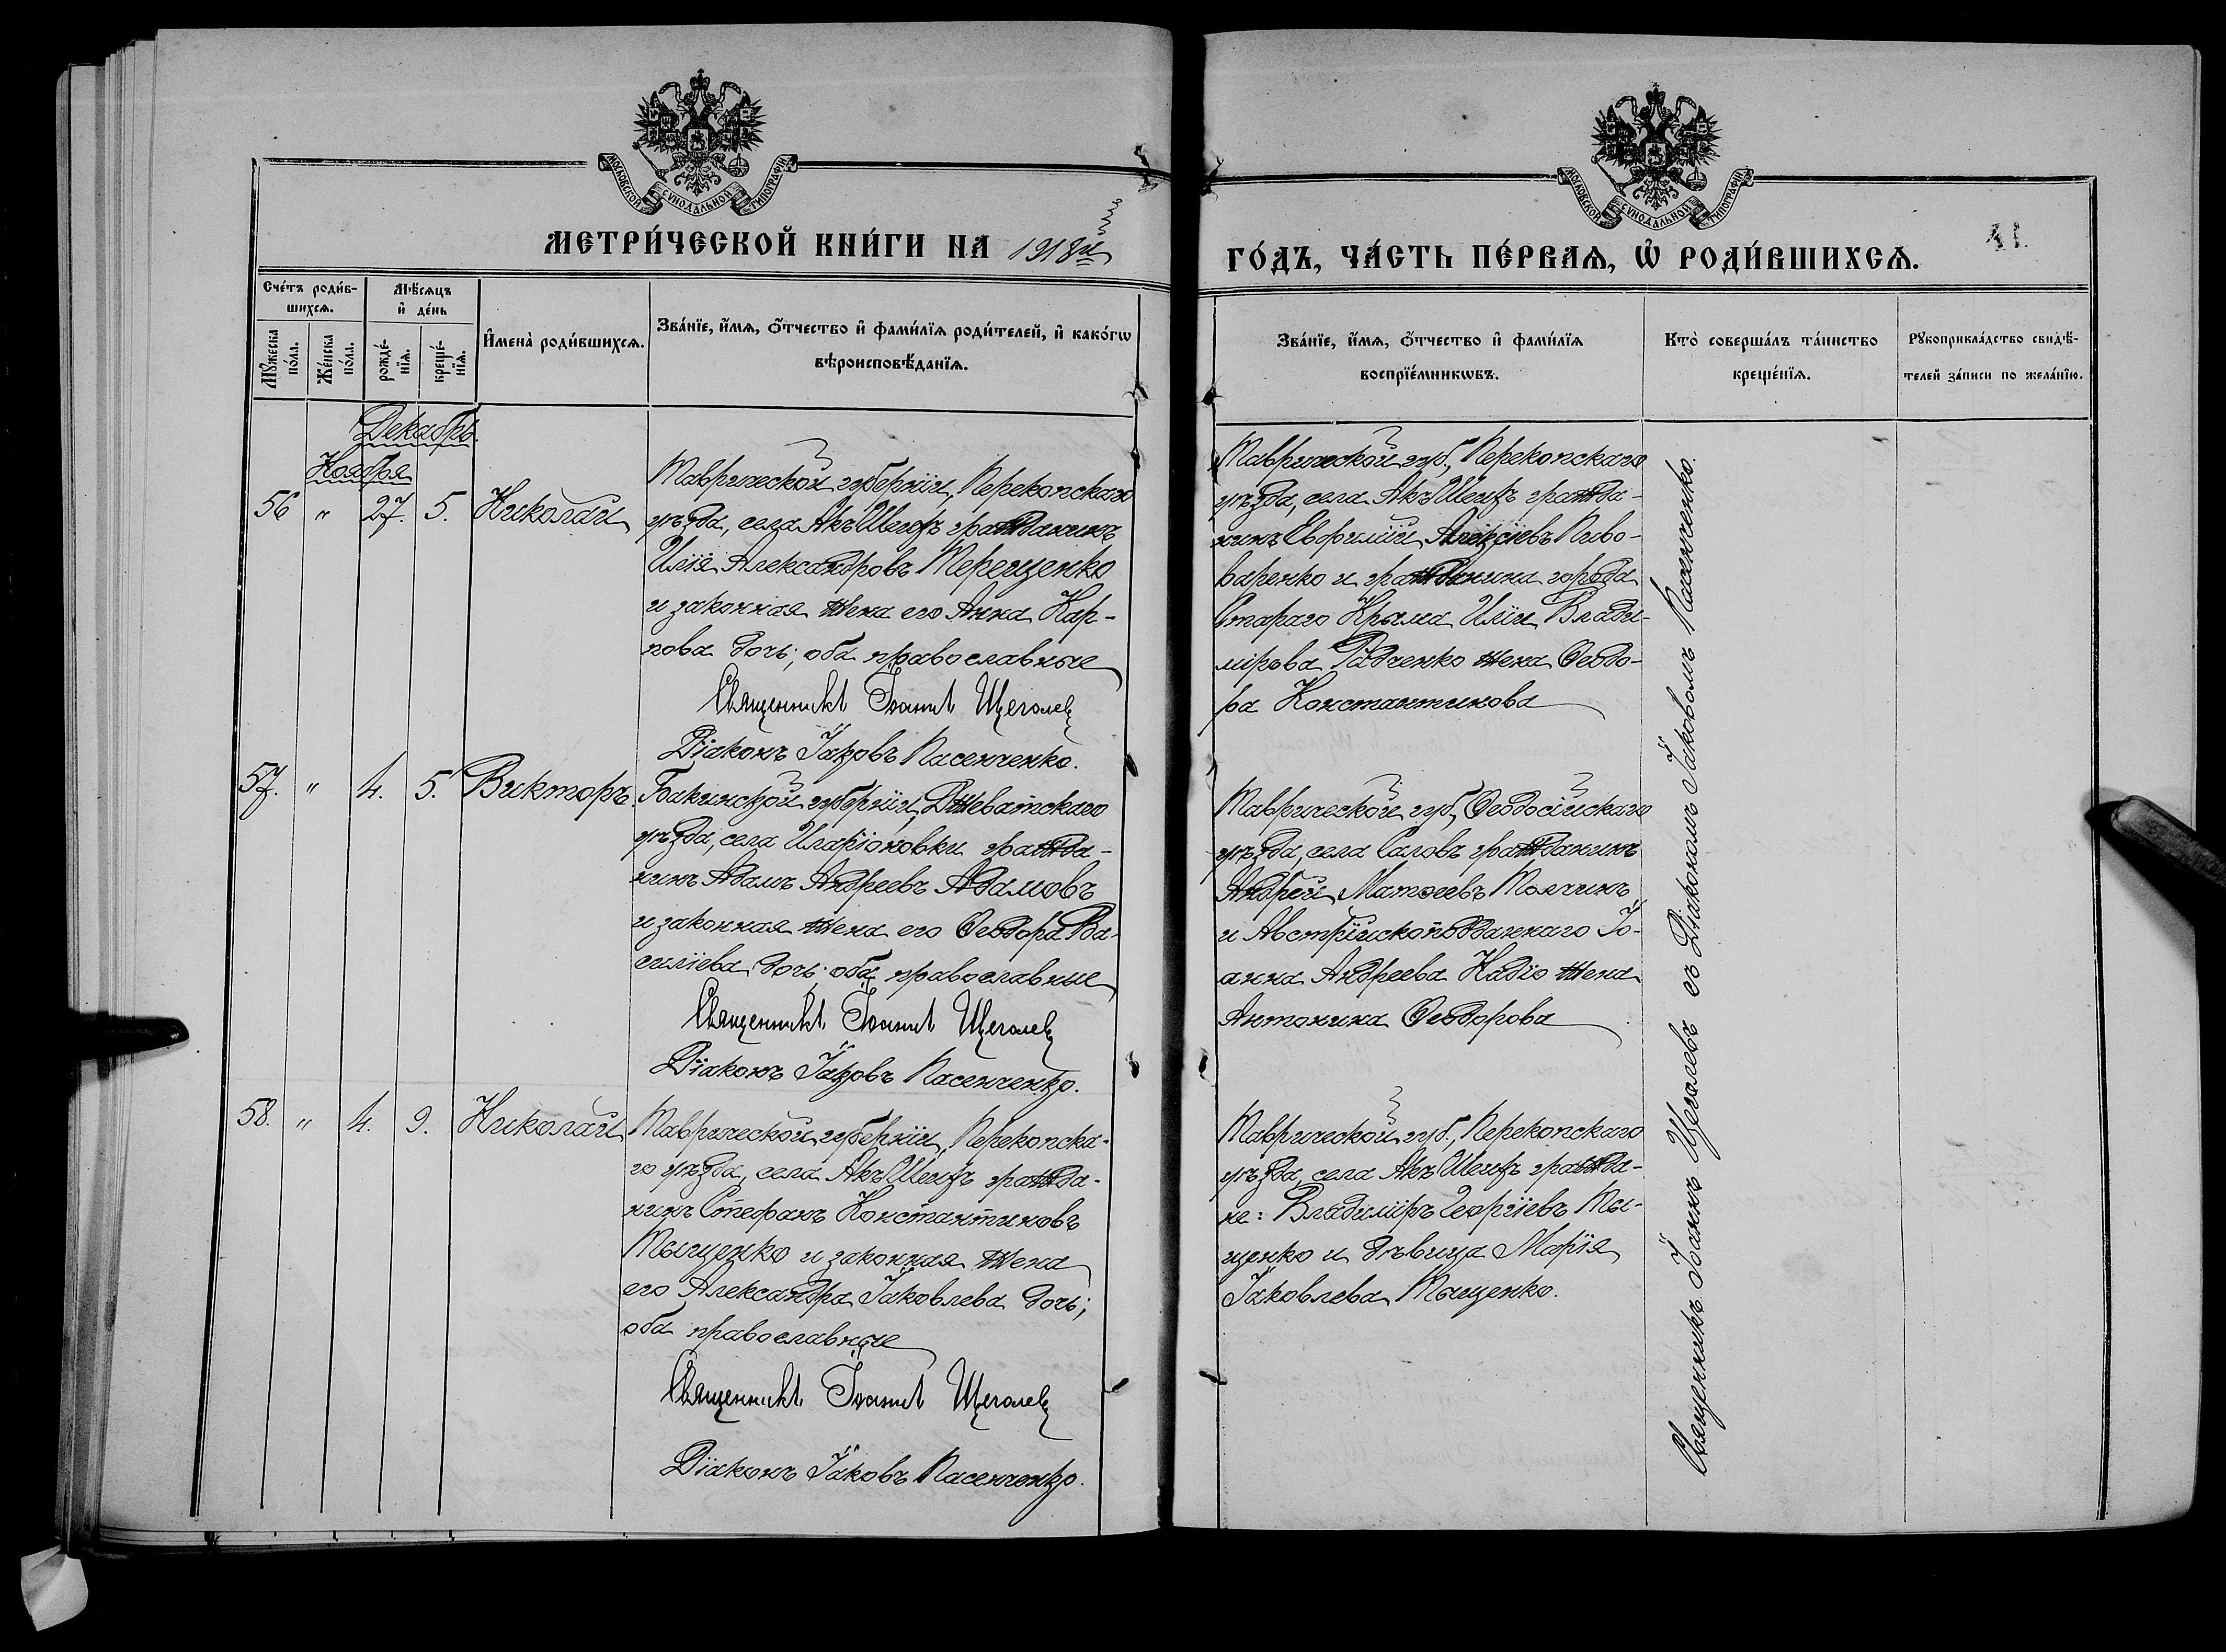 МОСКОВСКОЙ СѴНОДАЛЬНОЙ ТИПОГРАФІИ
МЕТРИ́ЧЕСКОЙ КНИ́ГИ НА 1918й
Сче́тъ роди́в-
шихсѧ.
Мꙋ́жеска
по́ла.
Же́нска
по́ла.
Мѣ́сѧцъ
и҆ де́нь
рожде́-
нїѧ.
креще́-
нїѧ.
И҆мена̀ роди́вшихсѧ.
Зва́нїе, и҆́мѧ, ѻ҆́тчество и҆ фами́лїѧ роди́телей, и҆ како́гѡ
вѣроисповѣ́данїѧ.
Декабрь.
Ноября
56 " 27. 5. Николай
Таврической губерніи, Перекопскаго
уѣзда, села Акъ Шеихъ гражданинъ
Илія Александровъ Терещенко
и законная жена его Анна Кар-
пова дочь; оба православные
Священникъ Іоаннъ Щеголевъ
Діаконъ Іаковъ Пасенченко.
57. " 4. 5. Викторъ.
Бакинской губерніи, Джеватскаго
уѣзда, села Иларіоновки гражда-
нинъ Адамъ Андреевъ Адамовъ
и законная жена его Ѳеодора Ва-
силіева дочь; оба православные
Священникъ Іоаннъ Щеголевъ
Діаконъ Іаковъ Пасенченко.
58. " 4. 9. Николай
Таврической губерніи, Перекопска-
го уѣзда, села Акъ Шеихъ гражда-
нинъ Стефанъ Константиновъ
Тыщенко и законная жена
его Александра Іаковлева дочь;
оба православные
Священникъ Іоаннъ Щеголевъ
Діаконъ Іаковъ Пасенченко.
МОСКОВСКОЙ СѴНОДАЛЬНОЙ ТИПОГРАФІИ
ГО́ДЪ, ЧА́СТЬ ПЕ́РВАѦ, Ѡ҆ РОДИ́ВШИХСѦ.
41.
Зва́нїе, и҆́мѧ, ѻ҆́тчество и҆ фами́лїѧ
воспрїе́мникѡвъ.
Кто̀ соверша́лъ та́инство
креще́нїѧ.
Рꙋкоприкла́дство свидѣ́-
телей за́писи по жела́нїю.
Таврической губ., Перекопскаго
уѣзда, села Акъ Шеихъ гражда-
нинъ Евфимій Алексіевъ Пиво-
варенко и гражданина города
Стараго Крыма Иліи Влади-
мірова Радченко жена Ѳеодо-
ра Константинова
Таврической губ., Ѳеодосійскаго
уѣзда, села Саловъ гражданинъ
Андрей Матѳеевъ Толчинъ
и Австрійскоподданнаго Іо-
анна Андреева Надіо жена
Антонина Ѳеодорова
Таврической губ., Перекопскаго
уѣзда, села Акъ Шеихъ гражда-
не: Владиміръ Георгіевъ Ты-
щенко и дѣвица Марія
Іаковлева Тыщенко.
Священникъ Іоаннъ Щеголевъ съ Діакономъ Іаковомъ Пасенченко.